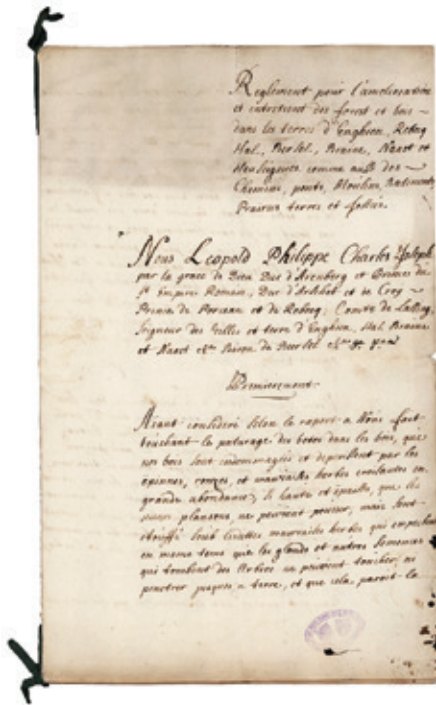 Reglement pour l'amelioration
et entretient des forest et bois
dans les terres d'Enghien, Rebecq
Hal, Bersel, Braine, Naast et
comme aussi des
Chemins, ponts, Moulins, Batiments,
Prairies terres et fossez.
Nous Leopold Philippe Charles Joseph
par la grace de Dieu Duc d'Arenberg et Prince du
St Empire Romain, Duc d'Arschot et de Croy
Prince de Porcean et de Rebecq; Comte de Lalaing,
Seigneur des Villes et terre d'Enghien, Hal Braine
et Naast Baron de Beersel
Premierement
Aiant consideré selon le raport a Nous fait
touchant le paturage des betes dans les bois, que
nos bois sont endommagés et deperissent par les
epinnes, ronces, et mauvaises herbes croissantes en
grande abondance, si haute et epaisse, que les
jeunes plansons, ne peuvent pousser, mais sont
etouffé mauvaises herbes qui empechent
en meme tems que les glands et autres semences
qui tombent des Arbres ne peuvent toucher, ni
penetrer jusques a terre, et que cela paroit la